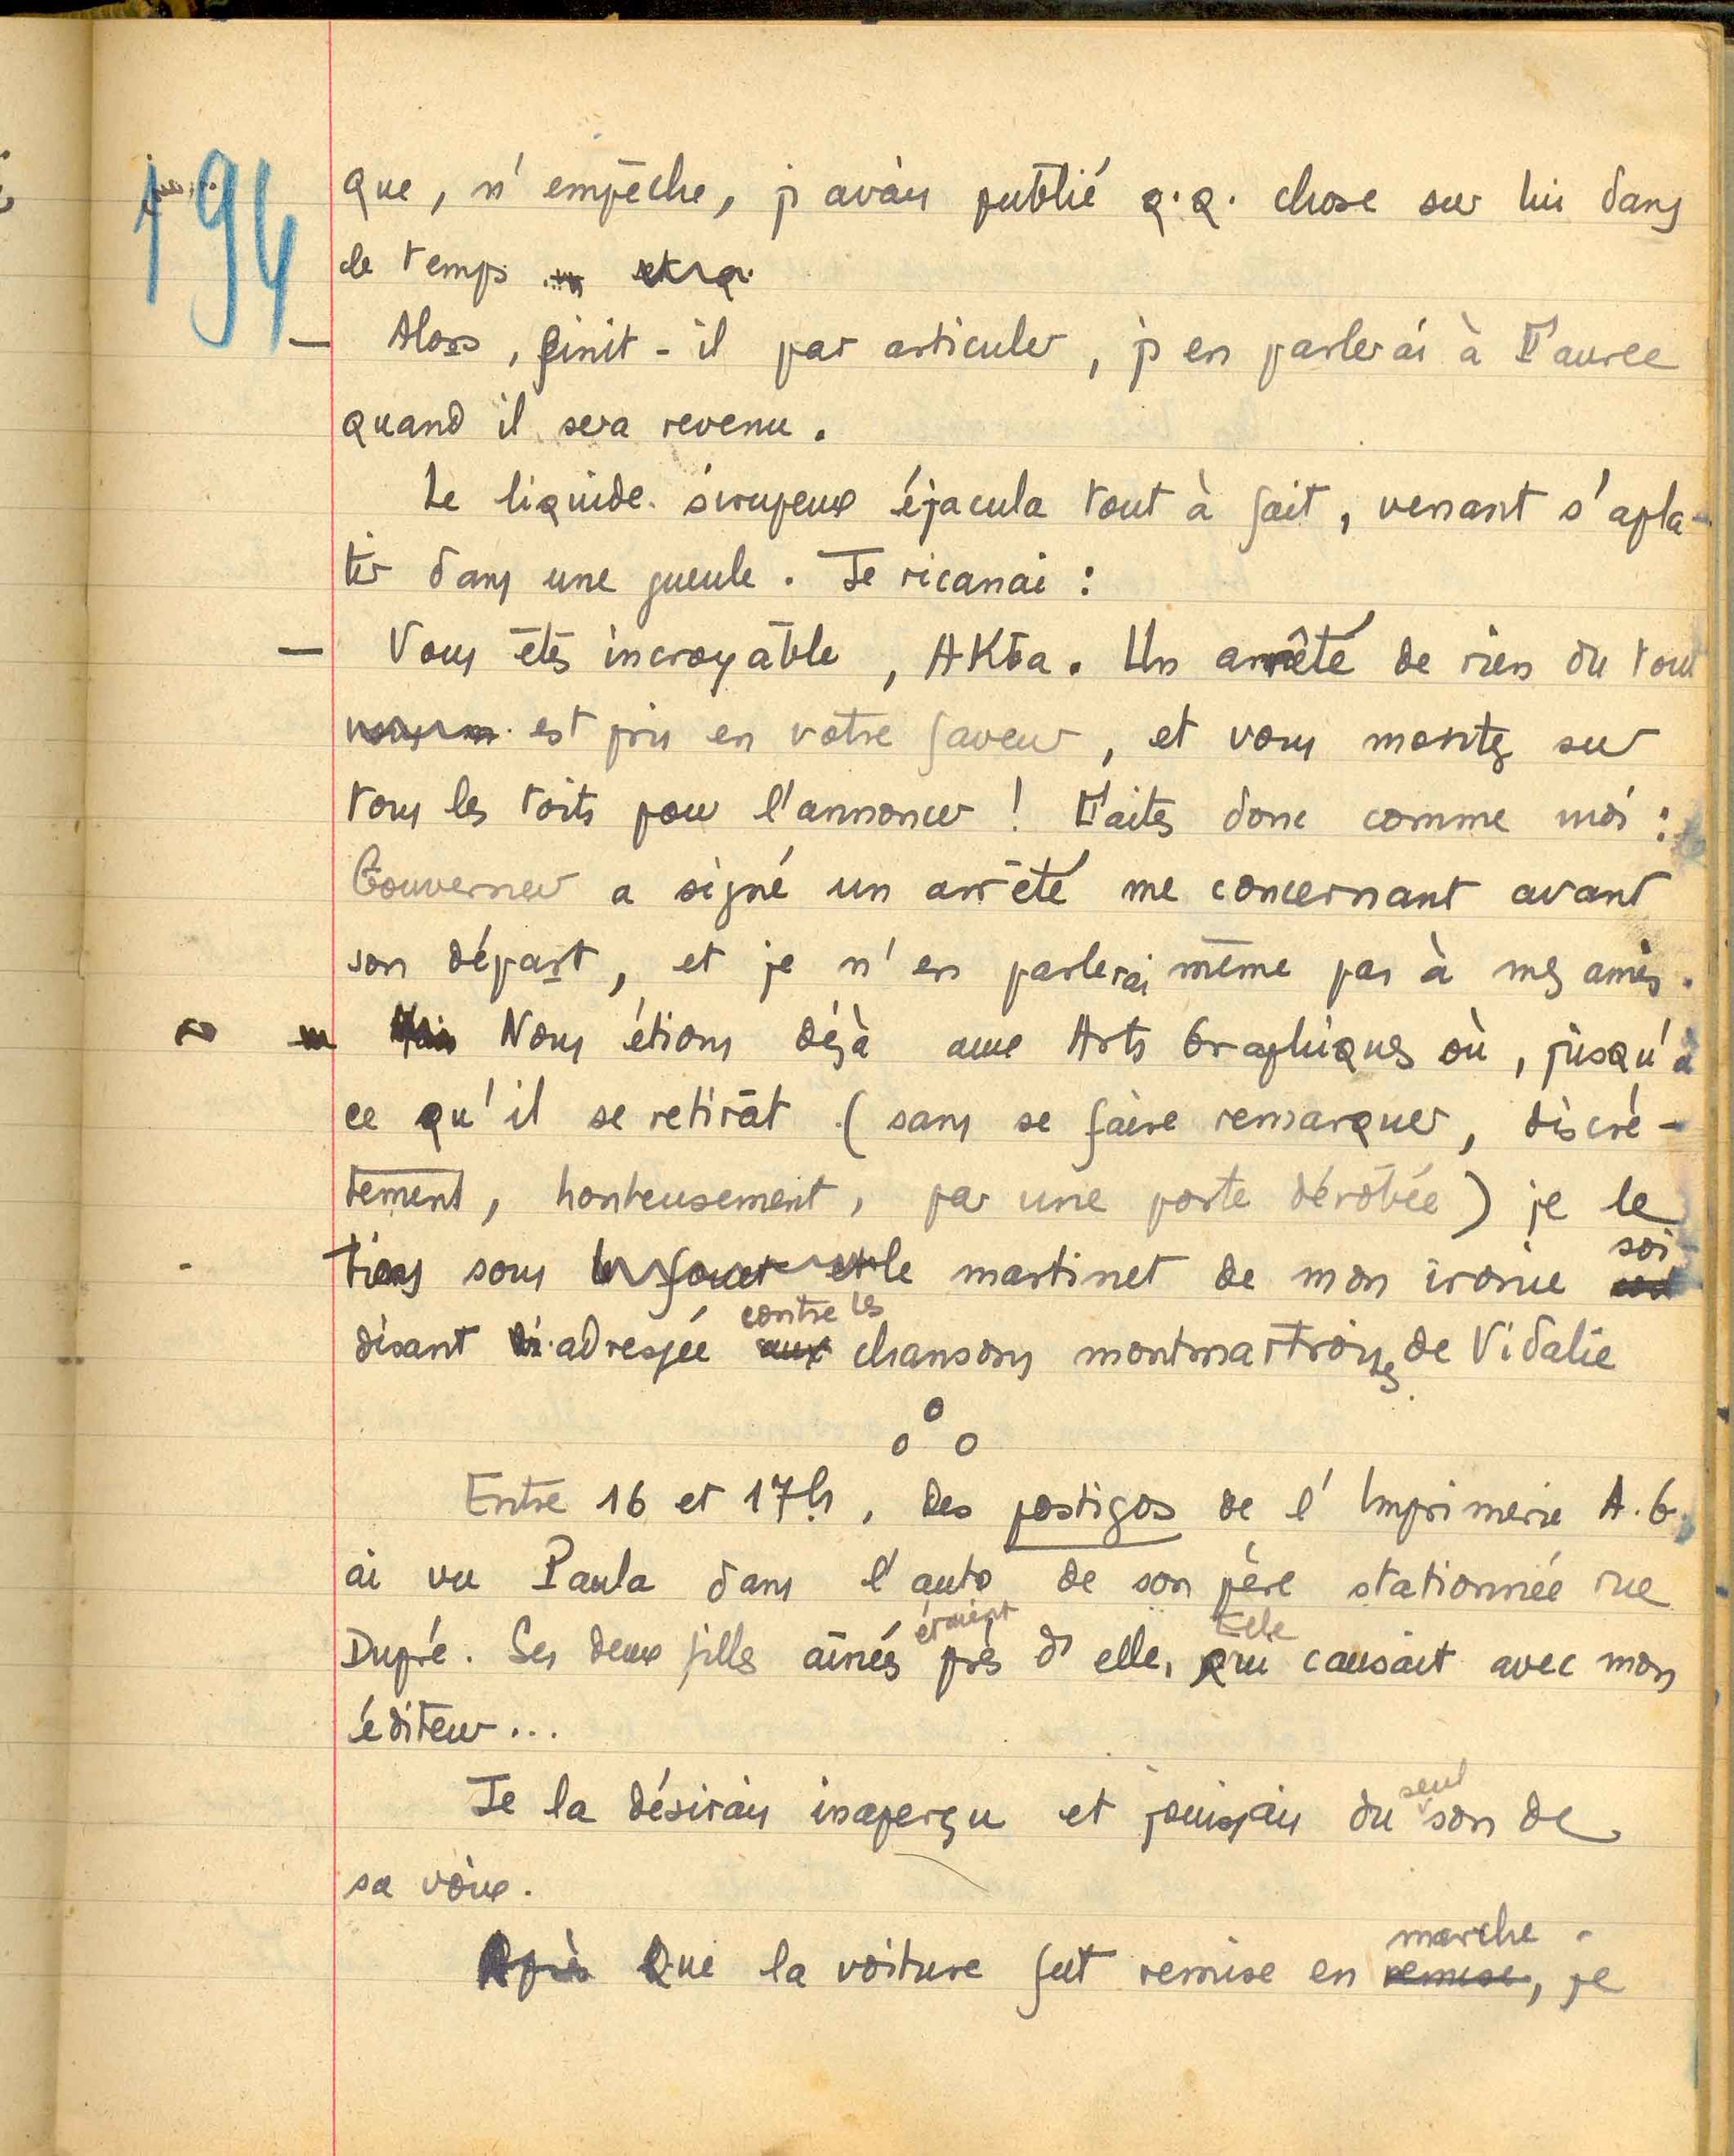 194
que, n'empêche, j'avais publié q.q. chose sur lui dans
le temps
— Alors, finit-il par articuler, j'en parlerai à Faurec
quand il sera revenu.
Le liquide sirupeux éjacula tout à fait, venant s'apla-
tir dans une gueule. Je ricanai :
— Vous êtes incroyable, AKBa. Un arrêté de rien du tout
est pris en votre faveur, et vous montez sur
tous les toits pour l'annoncer ! Faites donc comme moi :
Gouverneur a signé un arrêté me concernant avant
son départ, et je n'en parlerai même pas à mes amis.
Nous étions déjà aux Arts Graphiques où, jusqu'à
ce qu'il se retirât (sans se faire remarquer, discrè-
tement, honteusement, par une porte dérobée) je le
tiens sous le fouet et le martinet de mon ironie soi-
disant adressée contre les aux chansons montmartroises de Vidalie
Entre 16 et 17h, des postigos de l'Imprimerie A.G.
ai vu Paula dans l'auto de son père stationnée rue
Dupré. Ses deux filles aînées étaient près d'elle, Elle qui causait avec mon
éditeur...
Je la désirais inaperçu et jouissais du seul son de
sa voix.
Après Que la voiture fut remise en marche remise, je